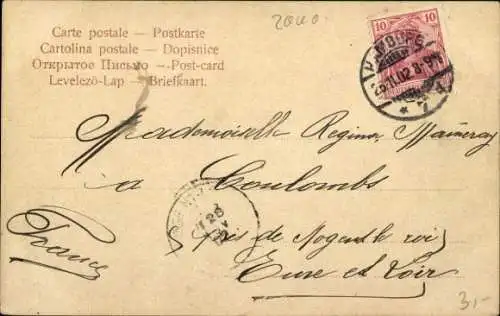 2000
Carte postale – Postkarte
Cartolina postale – Dopisnice
Открытое Письмо – Post-card
Levelező-Lap – Briefkaart.
10 10
HAMBURG
.11.02 8-9
* 7
Mademoiselle Regina
a Coulombs
28
près de Nogent le roi
France
Eure et Loir
3,-